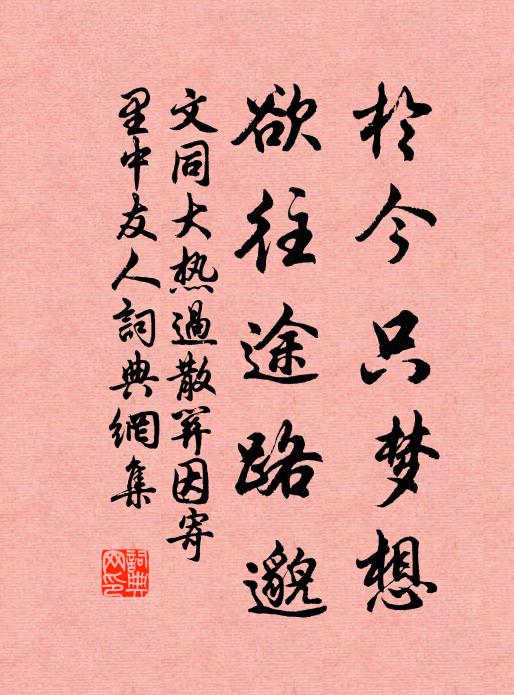 於今只梦想
欲往途路邈
文同大热過散關因寄
里中友人詞典網集
詞典网印